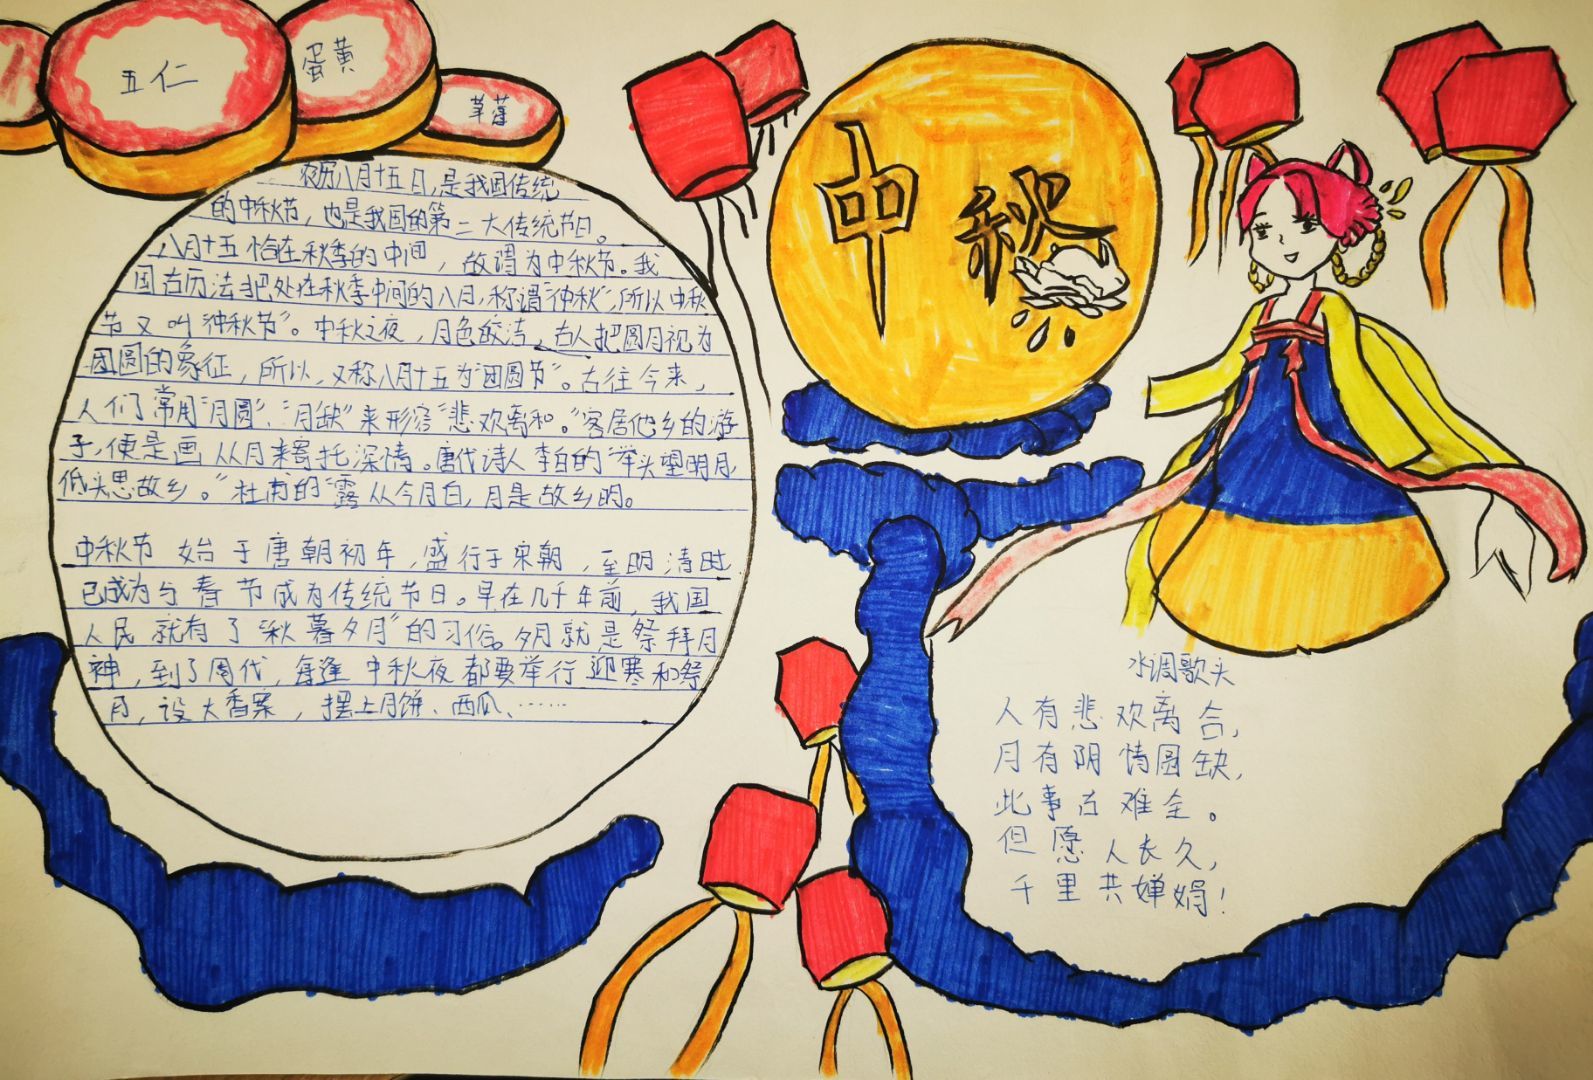 五仁
蛋黄
莲
中秋
农历八月十五日,是我国传统
的中秋节,也是我国的第二大传统节日。
八月十五恰在秋季的中间,故谓为中秋节。我
国古历法把处在秋季中间的八月,称谓“仲秋”,所以中秋
节又叫“仲秋节”。中秋之夜,月色皎洁,古人把圆月视为
团圆的象征,所以,又称八月十五为“团圆节”。古往今来,
人们常用“月圆”、“月缺”来形容“悲欢离和。”客居他乡的游
子,便是画从月来寄托深情。唐代诗人李白的“举头望明月,
低头思故乡。”杜甫的“露从今月白,月是故乡明。
中秋节始于唐朝初年,盛行于宋朝,至明清时
已成为与春节成为传统节日。早在几千年前,我国
人民就有了“秋暮夕月”的习俗。夕月就是祭拜月
神,到了周代,每逢中秋夜都要举行迎寒和祭
月,设大香案,摆上月饼、西瓜、……
水调歌头
人有悲欢离合,
月有阴情圆缺,
此事古难全。
但愿人长久,
千里共婵娟!